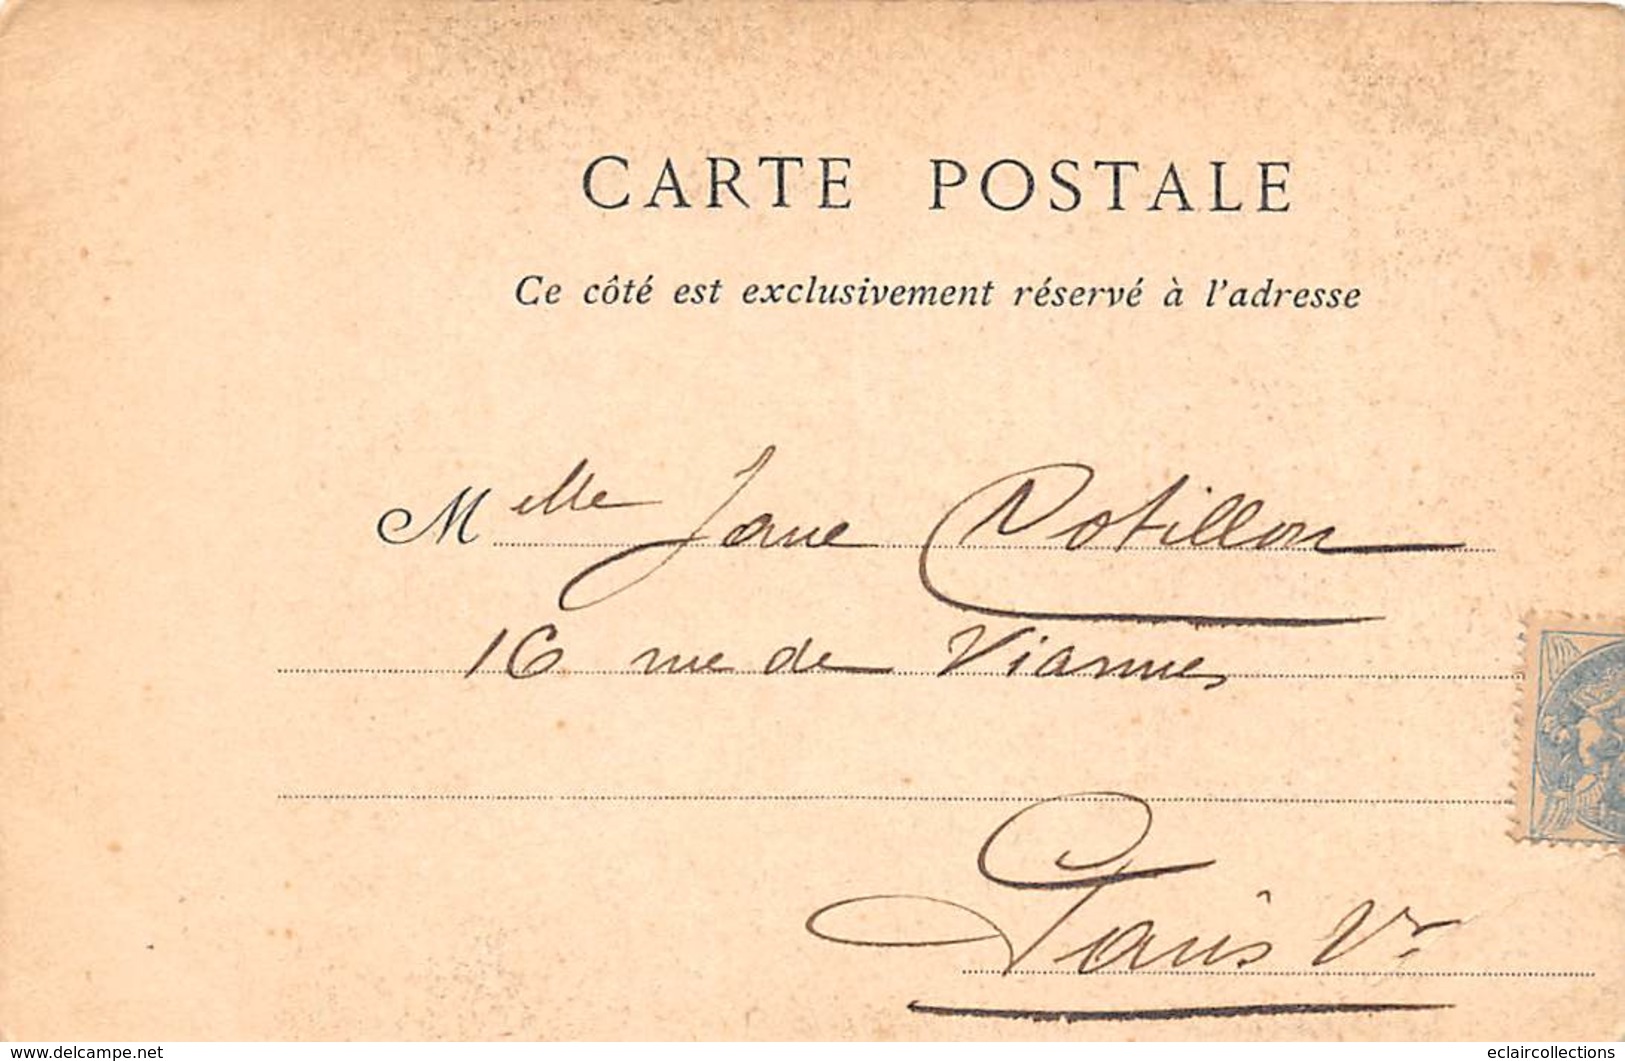 CARTE POSTALE
Ce côté est exclusivement réservé à l'adresse
Melle Jane Potillon
16 rue de Viarmes
Paris Vr
www.delcampe.net
eclaircollections